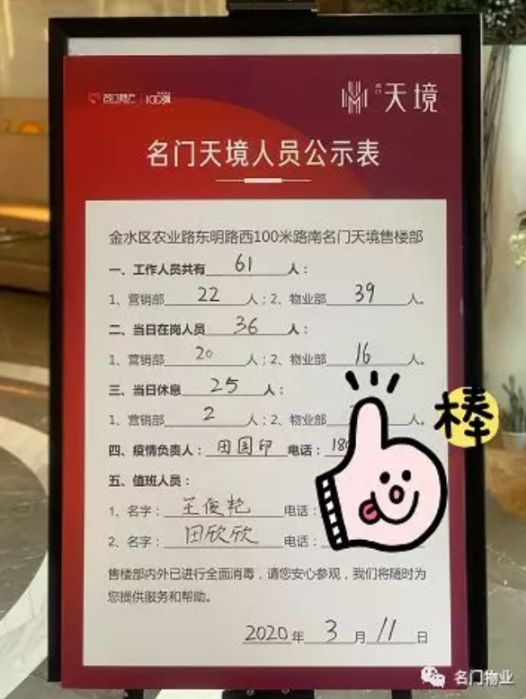 名门地产 100强
名门 天境
名门天境人员公示表
金水区农业路东明路西100米路南名门天境售楼部
一、工作人员共有 61 人：
1、营销部 22 人；2、物业部 39 人。
二、当日在岗人员 36 人：
1、营销部 20 人；2、物业部 16 人。
三、当日休息 25 人：
1、营销部 2 人；2、物业部
棒
四、疫情负责人：田国印 电话：180
五、值班人员：
1、名字：王俊艳 电话：
2、名字：田欣欣 电话：
售楼部内外已进行全面消毒，请您安心参观，我们将随时为
您提供服务和帮助。
2020 年 3 月 11 日
名门物业